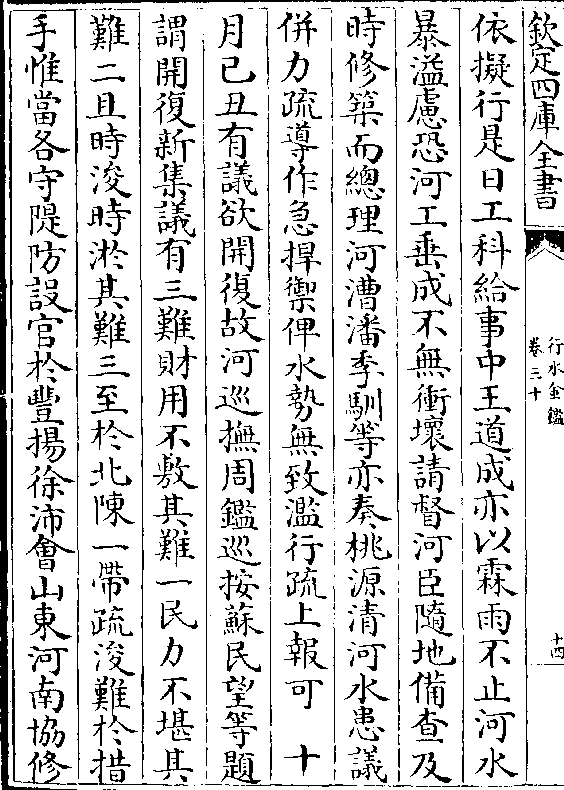 欽定四庫全書
行水金鑑
卷三十
十四
依擬行是日工科給事中王道成亦以霖雨不止河水
暴溢慮恐河工垂成不無衝壞請督河臣隨地備查及
時修築而總理河漕潘季馴等亦奏桃源清河水患議
併力疏導作急捍禦俾水勢無致濫行疏上報可　十
月己丑有議欲開復故河巡撫周鑑巡按蘇民望等題
謂開復新集議有三難財用不敷其難一民力不堪其
難二且時浚時淤其難三至於北陳一帶疏浚難於措
手惟當各守隄防設官於豐揚徐沛會山東河南協修